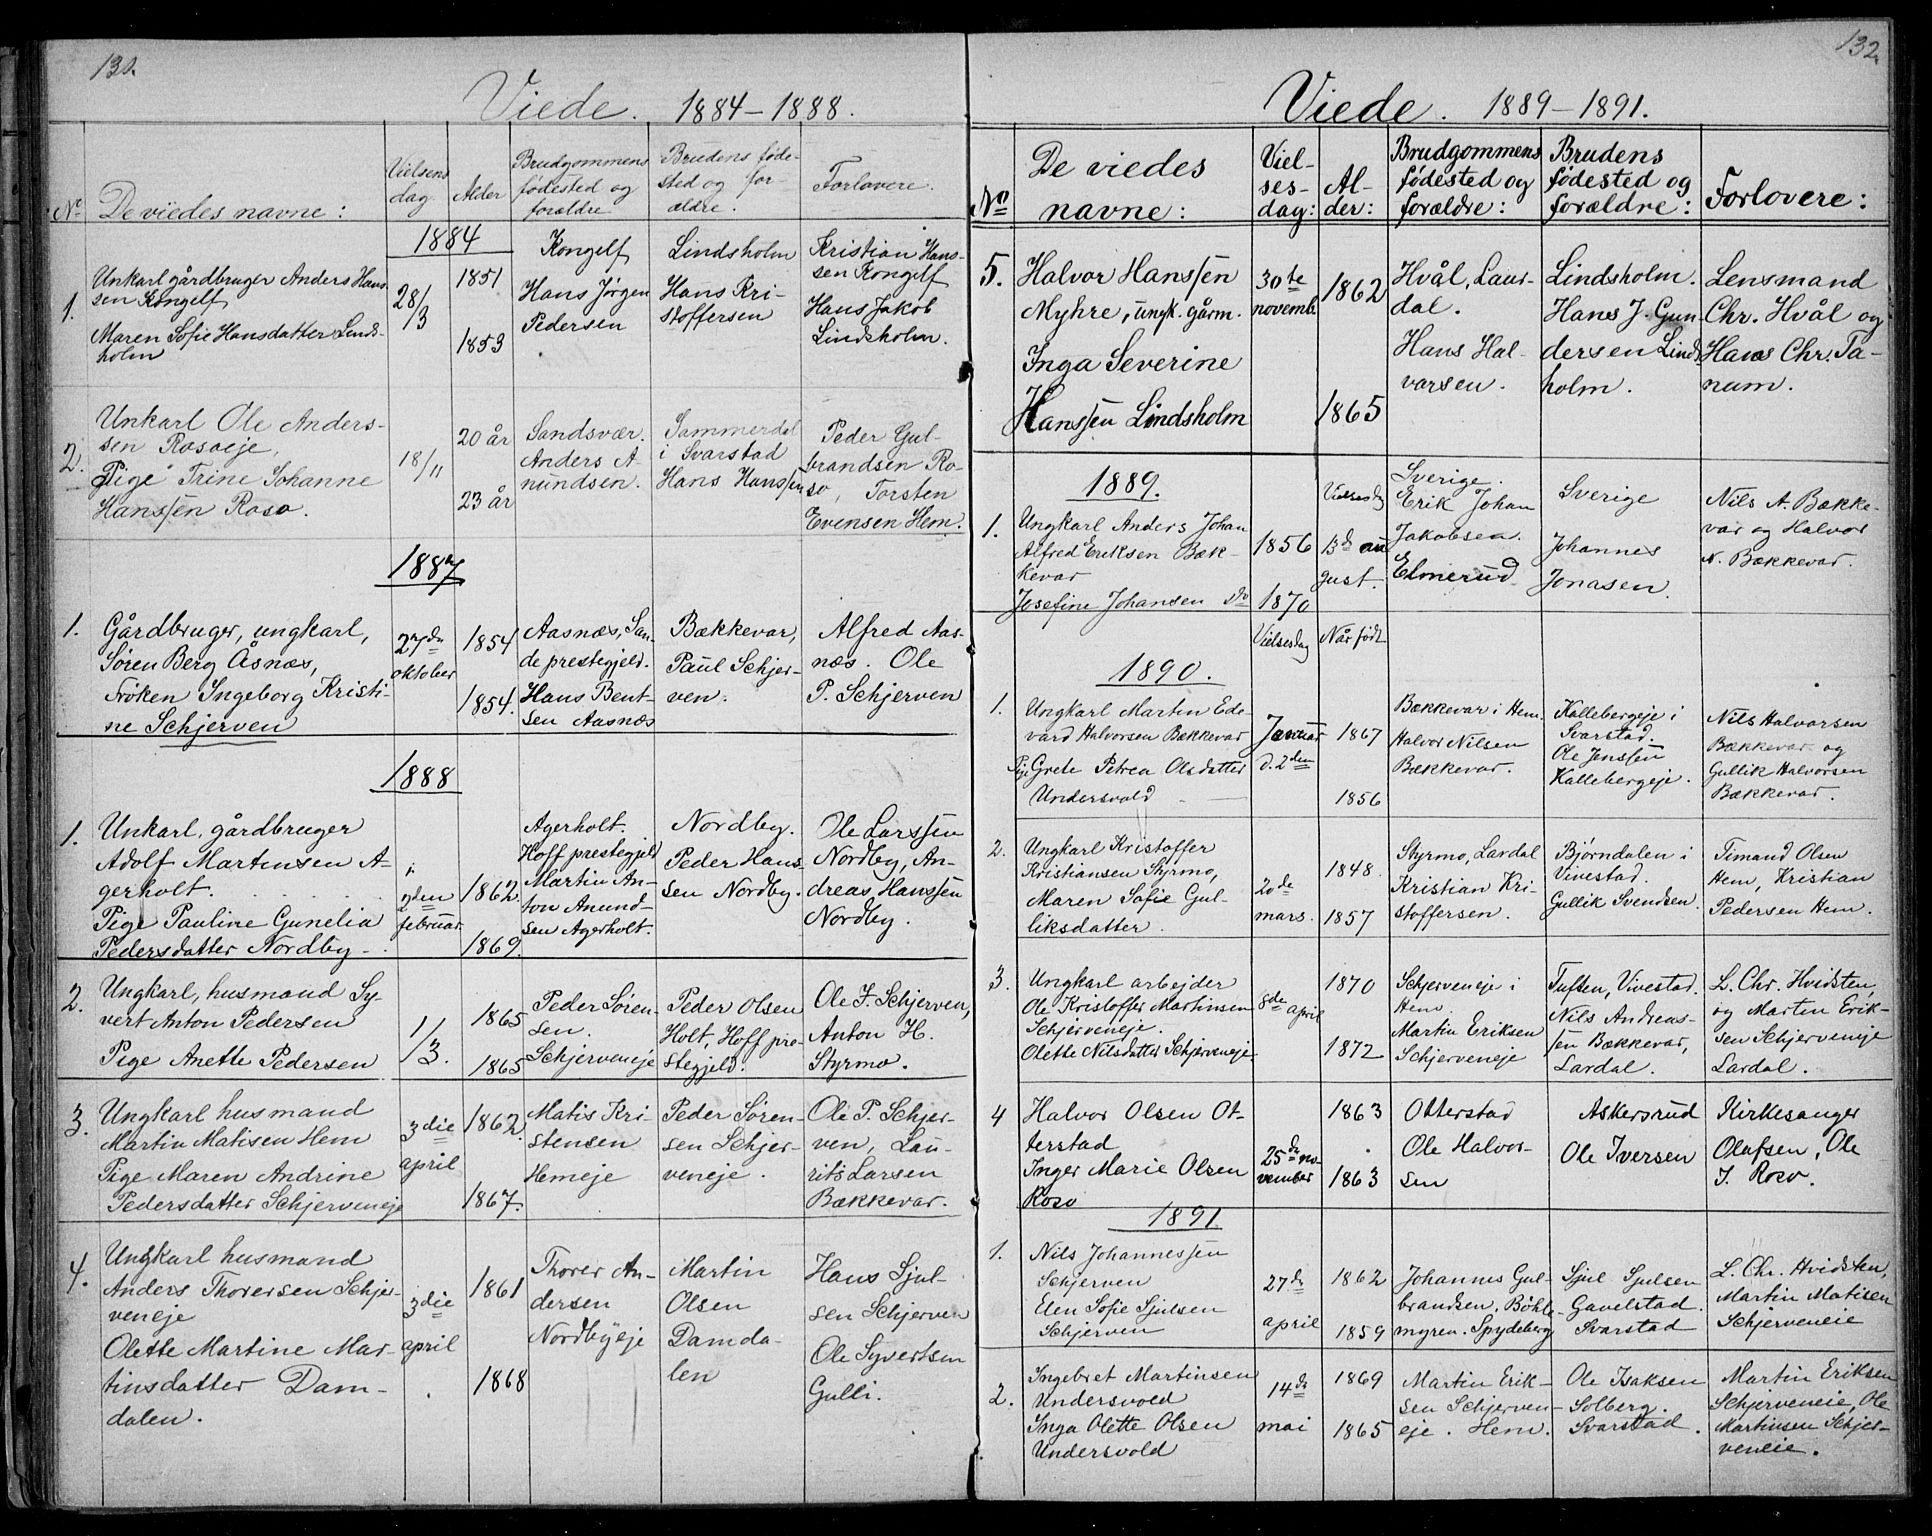 131.
Viede. 1884-1888.
No
De viedes navne:
Vielsens
dag.
Alder
Brudgommens
fødested og
forældre
Brudens føde-
sted og for-
ældre.
Forlovere.
1884
1.
Unkarl gårdbruger Anders Hans-
sen Kongelf
Maren Sofie Hansdatter Linds-
holm
28/3
1851
1853
Kongelf
Hans Jørgen
Pedersen
Lindsholm
Hans Kri-
stoffersen
Kristian Hans-
sen Kongelf
Hans Jakob
Lindsholm.
2.
Unkarl Ole Anders-
sen Rosoeje,
Pige Trine Johanne
Hanssen Roso.
18/11
20 år
23 år
Sandsvær.
Anders A-
nundsen.
Sammerdal
i Svarstad
Hans Hanssen
Peder Gul-
brandsen Ro-
so, Torsten
Evensen Hem.
1887
1.
Gårdbruger, ungkarl,
Søren Berg Åsnæs,
Frøken Ingeborg Kristi-
ne Schjerven
27de
oktober
1854
1854.
Aasnæs, San-
de prestegjeld.
Hans Bent-
sen Aasnæs
Bækkevar,
Paul Schjer-
ven.
Alfred Aas-
næs. Ole
P. Schjerven
1888
1.
Unkarl, gårdbruger
Adolf Martinsen A-
gerholt.
Pige Pauline Gunelia
Pedersdatter Nordby
2den
februar
1862
1869.
Agerholt.
Hoff prestegjeld
Martin An-
ton Anund-
sen Agerholt.
Nordby.
Peder Hans-
sen Nordby.
Ole Larssen
Nordby, An-
dreas Hanssen
Nordby.
2.
Ungkarl, husmand Sy-
vert Anton Pedersen
Pige Anette Pedersen
1/3.
1865
1865
Peder Søren-
sen.
Schjerveneje
Peder Olsen
Holt, Hoff pre-
stegjeld.
Ole J. Schjerven,
Anton H.
Styrmo.
3.
Ungkarl husmand
Martin Matisen Hem
Pige Maren Andrine
Pedersdatter Schjerveneje
3die
april
1862
1867.
Matis Kri-
stensen
Hemeje
Peder Søren-
sen Schjer-
veneje.
Ole P. Schjer-
ven, Lau-
rits Larsen
Bækkevar.
4.
Ungkarl husmand
Anders Thorersen Schjer-
veneje
Olette Martine Mar-
tinsdatter Dam-
dalen.
3die
april
1861
1868
Thorer An-
dersen
Nordbyeje
Martin
Olsen
Damda-
len
Hans Sjul-
sen Schjerven
Ole Syvertsen
Gulli.
132.
Viede. 1889-1891.
No
De viedes
navne:
Viel-
ses-
dag:
Al-
der:
Brudgommens
fødested og
forældre:
Brudens
fødested og
forældre:
Forlovere:
5.
Halvor Hanssen
Myhre, ungk. gårm.
Inga Severine
Hanssen Lindsholm
30te
novemb.
1862
1865
Hvål, Laur-
dal.
Hans Hal-
vorsen.
Lindsholm.
Hans J. Gun-
dersen Linds-
holm.
Lensmand
Chr. Hvål og
Hans Chr. Ta-
num.
1889.
1.
Ungkarl Anders Johan
Alfred Eriksen Bæk-
kevar
Josefine Johansen do
1856
1870
Vielsesdag
13de au
gust.
Sverige.
Erik Johan
Jakobsen.
Elmerud
Sverige
Johannes
Jonasen.
Nils A. Bække-
var og Halvor
N. Bækkevar.
Vielsesdag
Når født
1890.
1.
Ungkarl Marten Ed-
vard Halvorsen Bækkevar
Pige Grete Petrea Olsdatter
Undersvold
Januar
d. 2den
1867
1856
Bækkevar i Hem.
Halvor Nilsen
Bækkevar.
Kallebergeje i
Svarstad.
Ole Jenssen
Kallebergeje.
Nils Halvorsen
Bækkevar og
Gullik Halvorsen
Bækkevar.
2.
Ungkarl Kristoffer
Kristiansen Styrmo,
Maren Sofie Gul-
liksdatter.
20de
mars.
1848.
1857
Styrmo, Lardal
Kristian Kri-
stoffersen.
Bjørndalen i
Vivestad.
Gullik Svendsen.
Timand Olsen
Hem, Kristian
Pedersen Hem.
3.
Ungkarl arbejder
Ole Kristoffer Martinsen
Schjerveneje.
Olette Nilsdatter Schjerveneje
8de april
1870
1872
Schjerveneje i
Hem
Martin Eriksen
Schjerveneje
Tuften, Vivestad.
Nils Andreas-
sen Bækkevar,
Lardal.
L. Chr. Hvidsten,
og Marten Erik-
sen Schjerveneje
Lardal.
4
Halvor Olsen Ot-
terstad
Inger Marie Olsen
Roso
25de no-
vember
1863
1863
Otterstad
Ole Halvor-
sen
Askersrud
Ole Iversen
Kirkesanger
Olafsen, Ole
J. Roso.
1891
1.
Nils Johannessen
Schjerven
Elen Sofie Sjulsen
Schjerven
27de
april
1862
1859
Johannes Gul-
brandsen, Böhle-
myren. Spydeberg
Sjul Sjulsen
Gavelstad.
Svarstad
L. Chr. Hvidsten,
Martin Matisen
Schjerveneie
2.
Ingebret Martinsen
Undersvold
Inga Olette Olsen
Undersvold
14de
mai
1869
1865
Martin Erik-
sen Schjerven-
eje. Hem.
Ole Isaksen
Solberg.
Svarstad.
Martin Eriksen
Schjerveneie, Ole
Martinsen Schjer-
veneie.